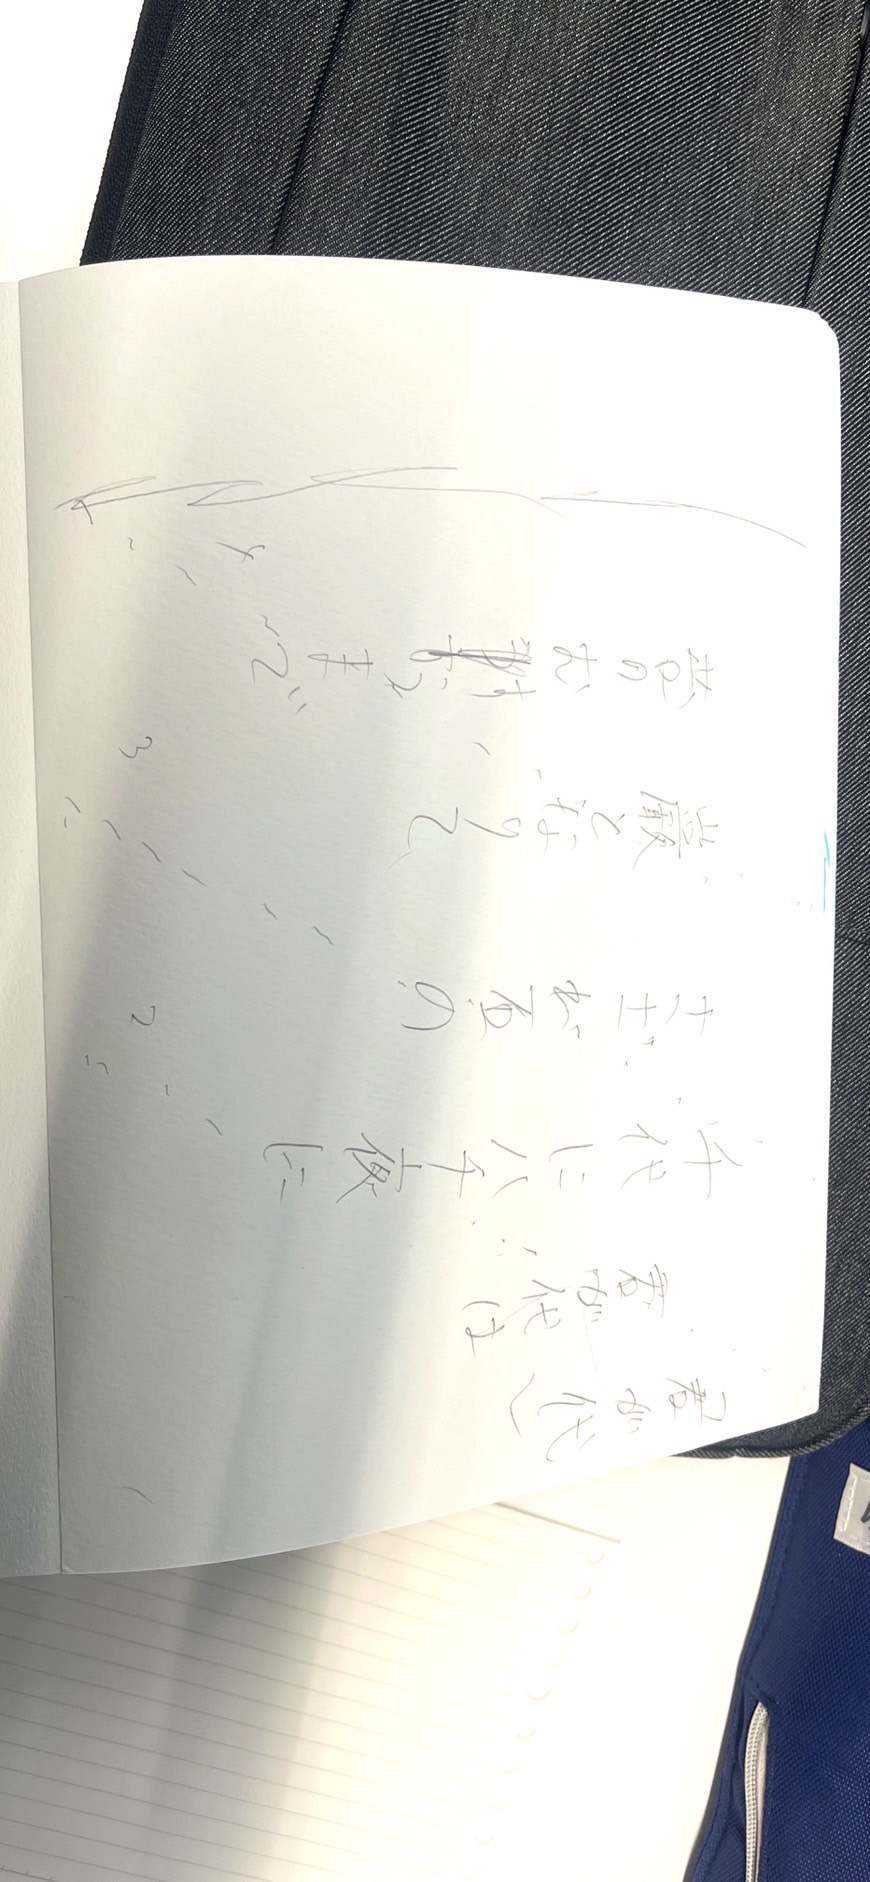 君が代
君が代は
千代に八千夜に
さざれ石の
巌となりて
苔のむすまで